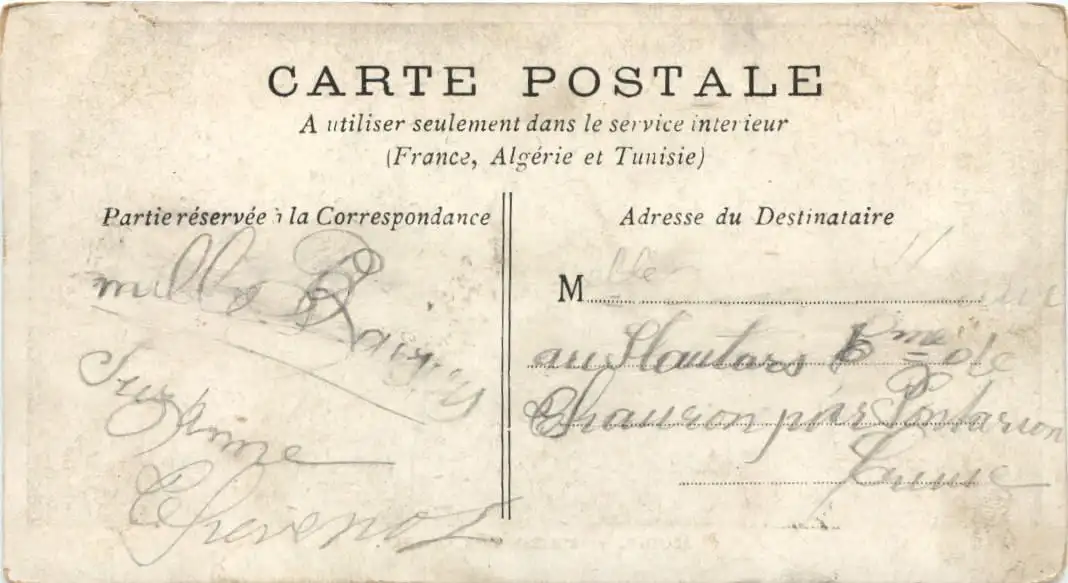 CARTE POSTALE
A utiliser seulement dans le service interieur
(France, Algérie et Tunisie)
Partie réservée à la Correspondance
mille Baisers
Suzanne
Thevenot
Adresse du Destinataire
M
elle
au
Cme de
Chauron par Pontarion
Creuse